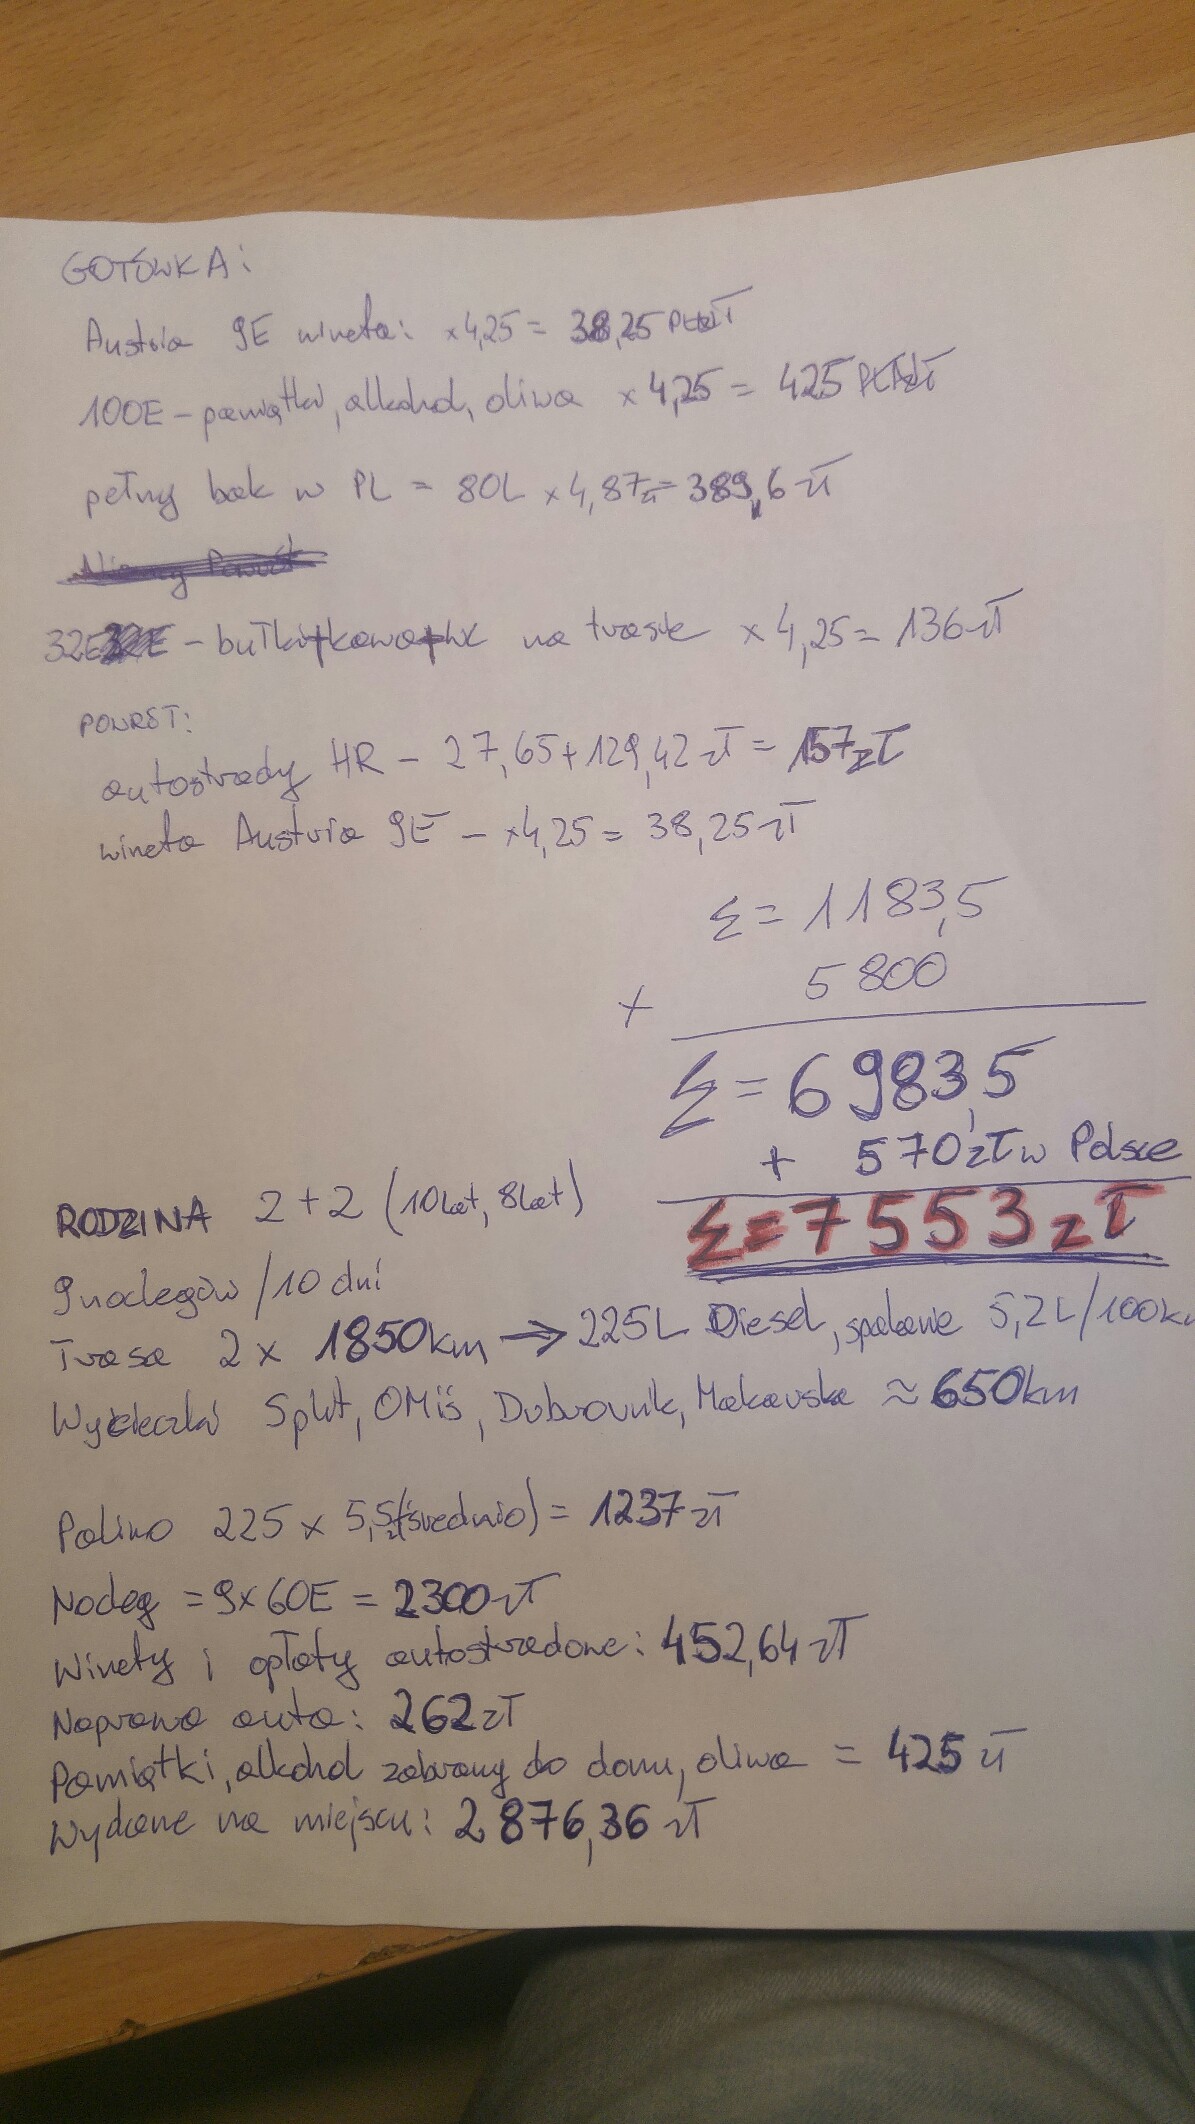 GOTÓWKA:
Austria 9E wineta: x4,25 = 38,25
100E - pamiątki, alkohol, oliwa x 4,25 = 425
pełny bak w PL = 80L x 4,87zł = 389,6 zł
32E - bułki+kawa+wc na trasie x 4,25 = 136 zł
POWRÓT:
autostrady HR - 27,65 + 129,42 zł = 157 zł
wineta Austria 9E - x4,25 = 38,25 zł
Σ = 1183,5
+ 5800
Σ = 6983,5
+ 570 zł w Polsce
Σ = 7553 zł
RODZINA 2+2 (10 lat, 8 lat)
9 noclegów / 10 dni
Trasa 2 x 1850km → 225L Diesel, spalanie 5,2L/100km
Wycieczki Split, OMiś, Dubrovnik, Makarska ≈ 650km
Paliwo 225 x 5,5zł (średnio) = 1237 zł
Nocleg = 9x60E = 2300 zł
Winety i opłaty autostradowe: 452,64 zł
Naprawa auta: 262 zł
Pamiątki, alkohol zabrany do domu, oliwa = 425 zł
Wydane na miejscu: 2876,36 zł